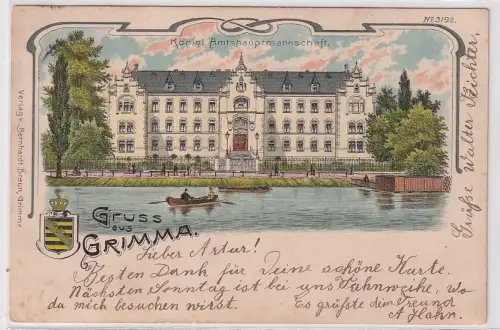 No. 3192.
Königl. Amtshauptmannschaft.
Verlag v. Bernhardt Braun, Grimma
Gruss
aus
GRIMMA.
Lieber Artur!
Besten Dank für Deine schöne Karte.
Nächsten Sonntag ist bei uns Fahnweihe, wo
da mich besuchen wirst. Es grüßte dem Freund
A Hahn.
Grüße Walter Richter.